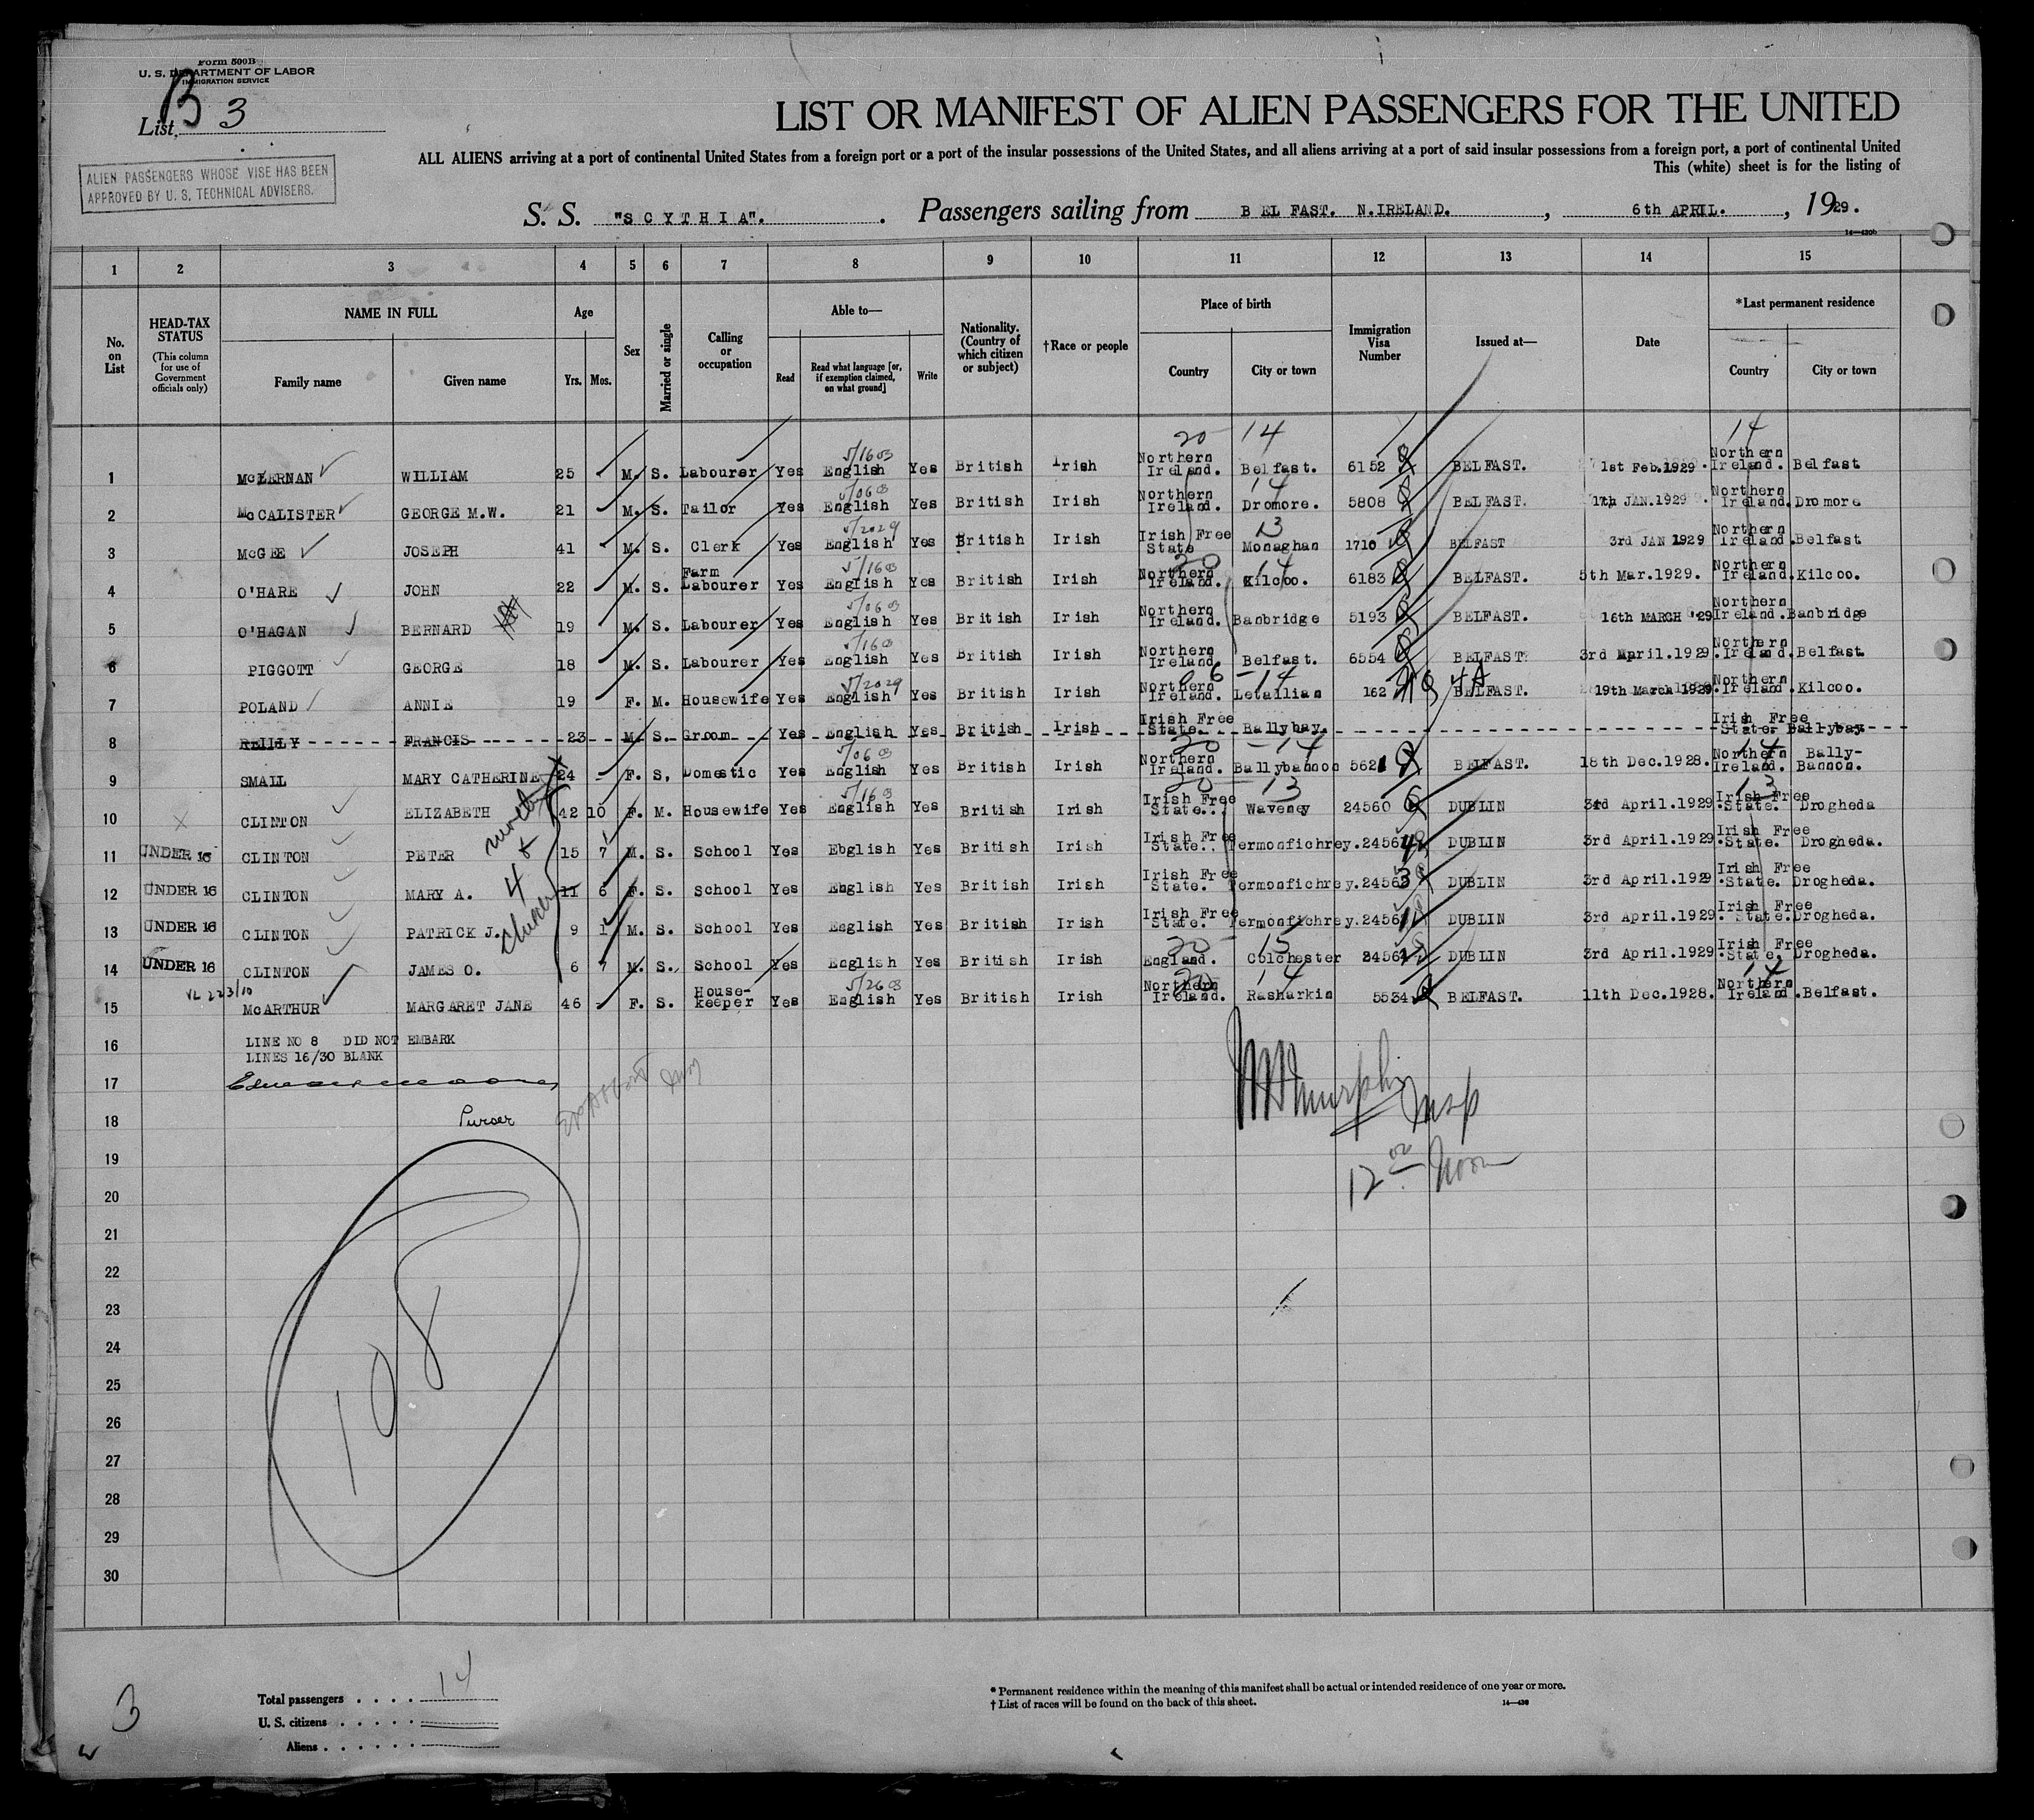 Form 500B
U. S. DEPARTMENT OF LABOR
IMMIGRATION SERVICE
List B 3
ALIEN PASSENGERS WHOSE VISE HAS BEEN
APPROVED BY U. S. TECHNICAL ADVISERS.
LIST OR MANIFEST OF ALIEN PASSENGERS FOR THE UNITED
ALL ALIENS arriving at a port of continental United States from a foreign port or a port of the insular possessions of the United States, and all aliens arriving at a port of said insular possessions from a foreign port, a port of continental United
This (white) sheet is for the listing of
S. S. "SCYTHIA". Passengers sailing from BELFAST. N.IRELAND., 6th APRIL., 1929.
14—430b
1 2 3 4 5 6 7 8 9 10 11 12 13 14 15
No. on List
HEAD-TAX STATUS (This column for use of Government officials only)
NAME IN FULL Family name Given name
Age Yrs. Mos.
Sex
Married or single
Calling or occupation
Able to— Read Read what language [or, if exemption claimed, on what ground] Write
Nationality. (Country of which citizen or subject)
†Race or people
Place of birth Country City or town
Immigration Visa Number
Issued at—
Date
*Last permanent residence Country City or town
20 14 14
5/1603
1 McLERNAN WILLIAM 25 M. S. Labourer Yes English Yes British Irish Northern Ireland. Belfast. 6152 BELFAST. 1st Feb.1929. Northern Ireland. Belfast
2 McCALISTER GEORGE M.W. 21 M. S. Tailor Yes English Yes British Irish Northern Ireland. Dromore. 5808 BELFAST. 17th JAN.1929. Northern Ireland. Dromore
5/2029 13
3 McGEE JOSEPH 41 M. S. Clerk Yes English Yes British Irish Irish Free State Monaghan 1710 BELFAST 3rd JAN 1929 Northern Ireland. Belfast
4 O'HARE JOHN 22 M. S. Farm Labourer Yes English Yes British Irish Northern Ireland. Kilcoo. 6183 BELFAST. 5th Mar.1929. Northern Ireland. Kilcoo.
5 O'HAGAN BERNARD 19 M. S. Labourer Yes English Yes British Irish Northern Ireland. Banbridge 5193 BELFAST. 16th MARCH '29 Northern Ireland. Banbridge
6 PIGGOTT GEORGE 18 M. S. Labourer Yes English Yes British Irish Northern Ireland Belfast. 6554 BELFAST. 3rd April.1929. Northern Ireland. Belfast
5/2029 14 4A
7 POLAND ANNIE 19 F. M. Housewife Yes English Yes British Irish Northern Ireland. Letallian 162 BELFAST. 19th March 1929. Northern Ireland. Kilcoo.
8 REILLY FRANCIS 23 M. S. Groom Yes English Yes British Irish Irish Free State. Ballybay. Irish Free State. Ballybay
20 14 14
9 SMALL MARY CATHERINE 24 - F. S, Domestic Yes English Yes British Irish Northern Ireland. Ballybannon 5621 BELFAST. 18th Dec.1928. Northern Ireland. Bally-Bannon.
20 13 13
10 CLINTON ELIZABETH 42 10 F. M. Housewife Yes English Yes British Irish Irish Free State.. Waveney 24560 DUBLIN 3rd April.1929. Irish Free State. Drogheda
11 UNDER 16 CLINTON PETER 15 7 M. S. School Yes Ebglish Yes British Irish Irish Free State.. Termonfichrey. 24564 DUBLIN 3rd April.1929. Irish Free State. Drogheda.
12 UNDER 16 CLINTON MARY A. 11 6 F. S. School Yes English Yes British Irish Irish Free State. Termonfichrey. 24563 DUBLIN 3rd April.1929. Irish Free State. Drogheda.
13 UNDER 16 CLINTON PATRICK J. 9 1 M. S. School Yes English Yes British Irish Irish Free State. Termonfichrey. 24561 DUBLIN 3rd April.1929. Irish Free State. Drogheda.
14 UNDER 16 CLINTON JAMES O. 6 7 M. S. School Yes English Yes British Irish England. Colchester 24562 DUBLIN 3rd April.1929. Irish Free State. Drogheda.
mother & 4 children
20 14 14
15 McARTHUR MARGARET JANE 46 - F. S. House-keeper Yes English Yes British Irish Northern Ireland. Rasharkin 5534 BELFAST. 11th Dec.1928. Northern Ireland. Belfast.
16 LINE NO 8 DID NOT EMBARK
LINES 16/30 BLANK
17
18 Purser
Murphy Insp
12 00 Noon
19
20
21
22
23
24
25
26
27
28
29
30
108
3
Total passengers . . . . 14
U. S. citizens . . . . .
Aliens . . . . . .
* Permanent residence within the meaning of this manifest shall be actual or intended residence of one year or more.
† List of races will be found on the back of this sheet.
14—430